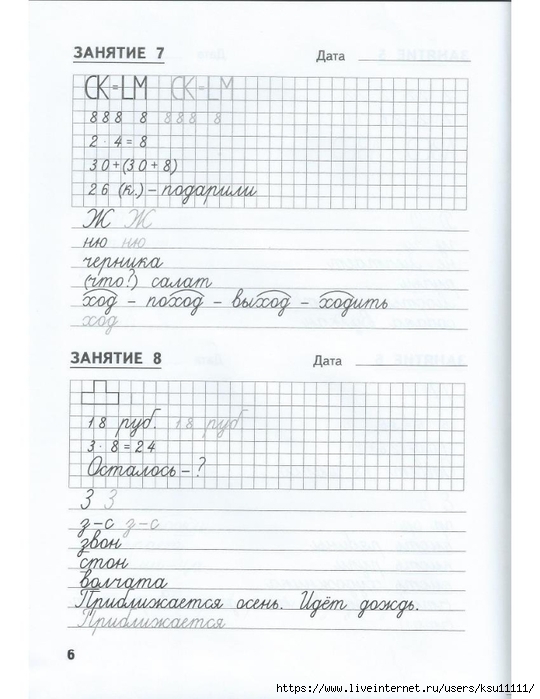 ЗАНЯТИЕ 7 Дата
СК=LM СК=LM
888 8 888 8
2 · 4 = 8
30+(30+8)
26 (к.) – подарили
Ж Ж
ню ню
черника
(что?) салат
ход – поход – выход – ходить
ход
ЗАНЯТИЕ 8 Дата
18 руб. 18 руб
3 · 8 = 24
Осталось – ?
З З
з–с з–с
звон
стон
волчата
Приближается осень. Идёт дождь.
Приближается
6
https://www.liveinternet.ru/users/ksu11111/